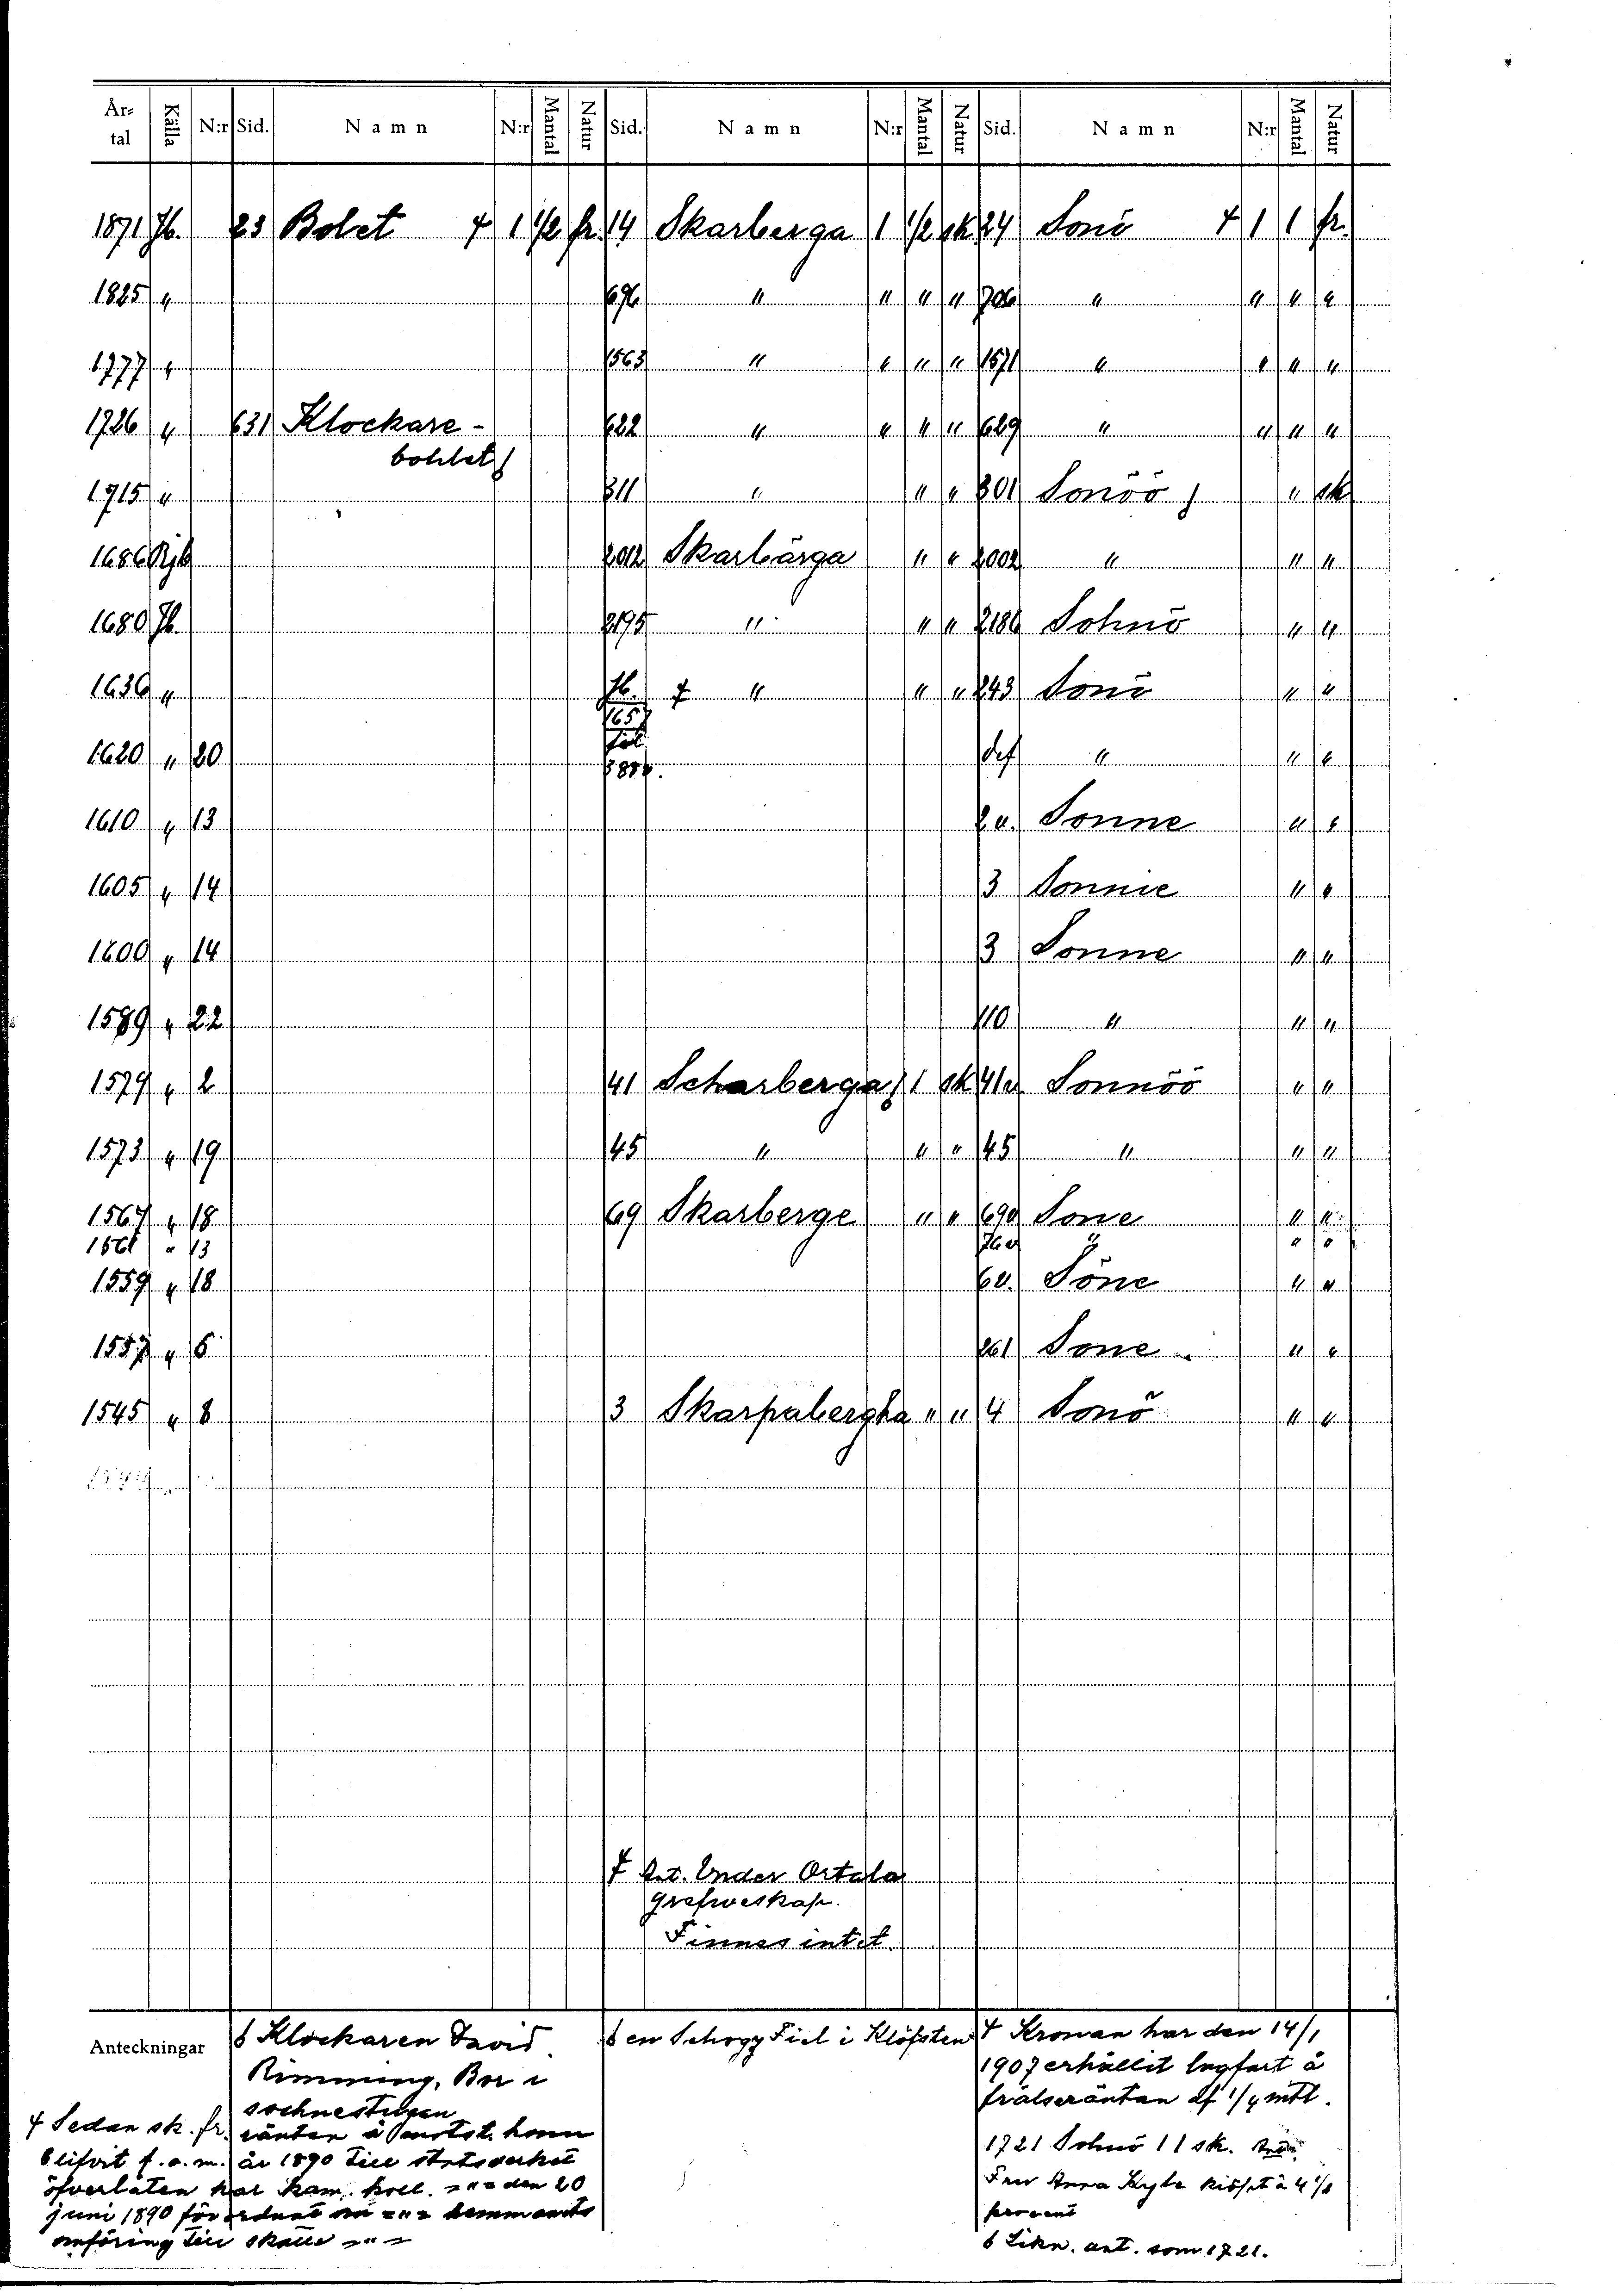 År-tal Källa N:r Sid. Namn N:r Mantal Natur Sid. Namn N:r Mantal Natur Sid. Namn N:r Mantal Natur
1871 Jb. 23 Bolet 1 1/2 fr. 14 Skarberga 1 1/2 sk 24 Sonö 1 1 fr.
1825 " 696 " " " " 706 " " " "
1777 " 1563 " " " " 1571 " " " "
1726 " 631 Klockare- 622 " " " " 629 " " " "
bohlet
1715 " 811 " " " 801 Sonöö " sk
1686 Rjb 2012 Skarbärga " " 2002 " " "
1680 Jb. 2195 " " " 2186 Sohnö " "
1636 " Jb. " " " 243 Sonö " "
1657
1620 " 20 def " " "
1610 " 13 2 a. Sonne " "
1605 " 14 3 Sonnie " "
1600 " 14 3 Sonne " "
1589 " 22 110 " " "
1579 " 2 41 Scharberga 1 sk 41 a. Sonnöö " "
1573 " 19 45 " " " 45 " " "
1567 " 18 69 Skarberge " " 69a Sone " "
1561 " 13 " " "
1559 " 18 6a. Söne " "
1557 " 6 261 Sone " "
1545 " 8 3 Skarpabergha " " 4 Sonö " "
Ant. Under Ortala
grefweskap.
Finnes intet.
Anteckningar
Klockaren David
Rimming, Bor i
sochnestugen
Sedan sk. fr. räntan å motst. hem
blifvit f. o. m. år 1890 till statsverket
öfverlåten har Kam. koll. -"- den 20
juni 1890 förordnat om -"- hemmanets
omföring till skatte -"-
en Schogg Fiel i Klöfsten
Kronan har den 14/1
1907 erhållit lagfart å
frälseräntan af 1/4 mtl.
1721 Sohnö 1 1 sk.
Fru Anna Kyhle köpt à 4 1/2
procent
Likn. ant. som 1721.